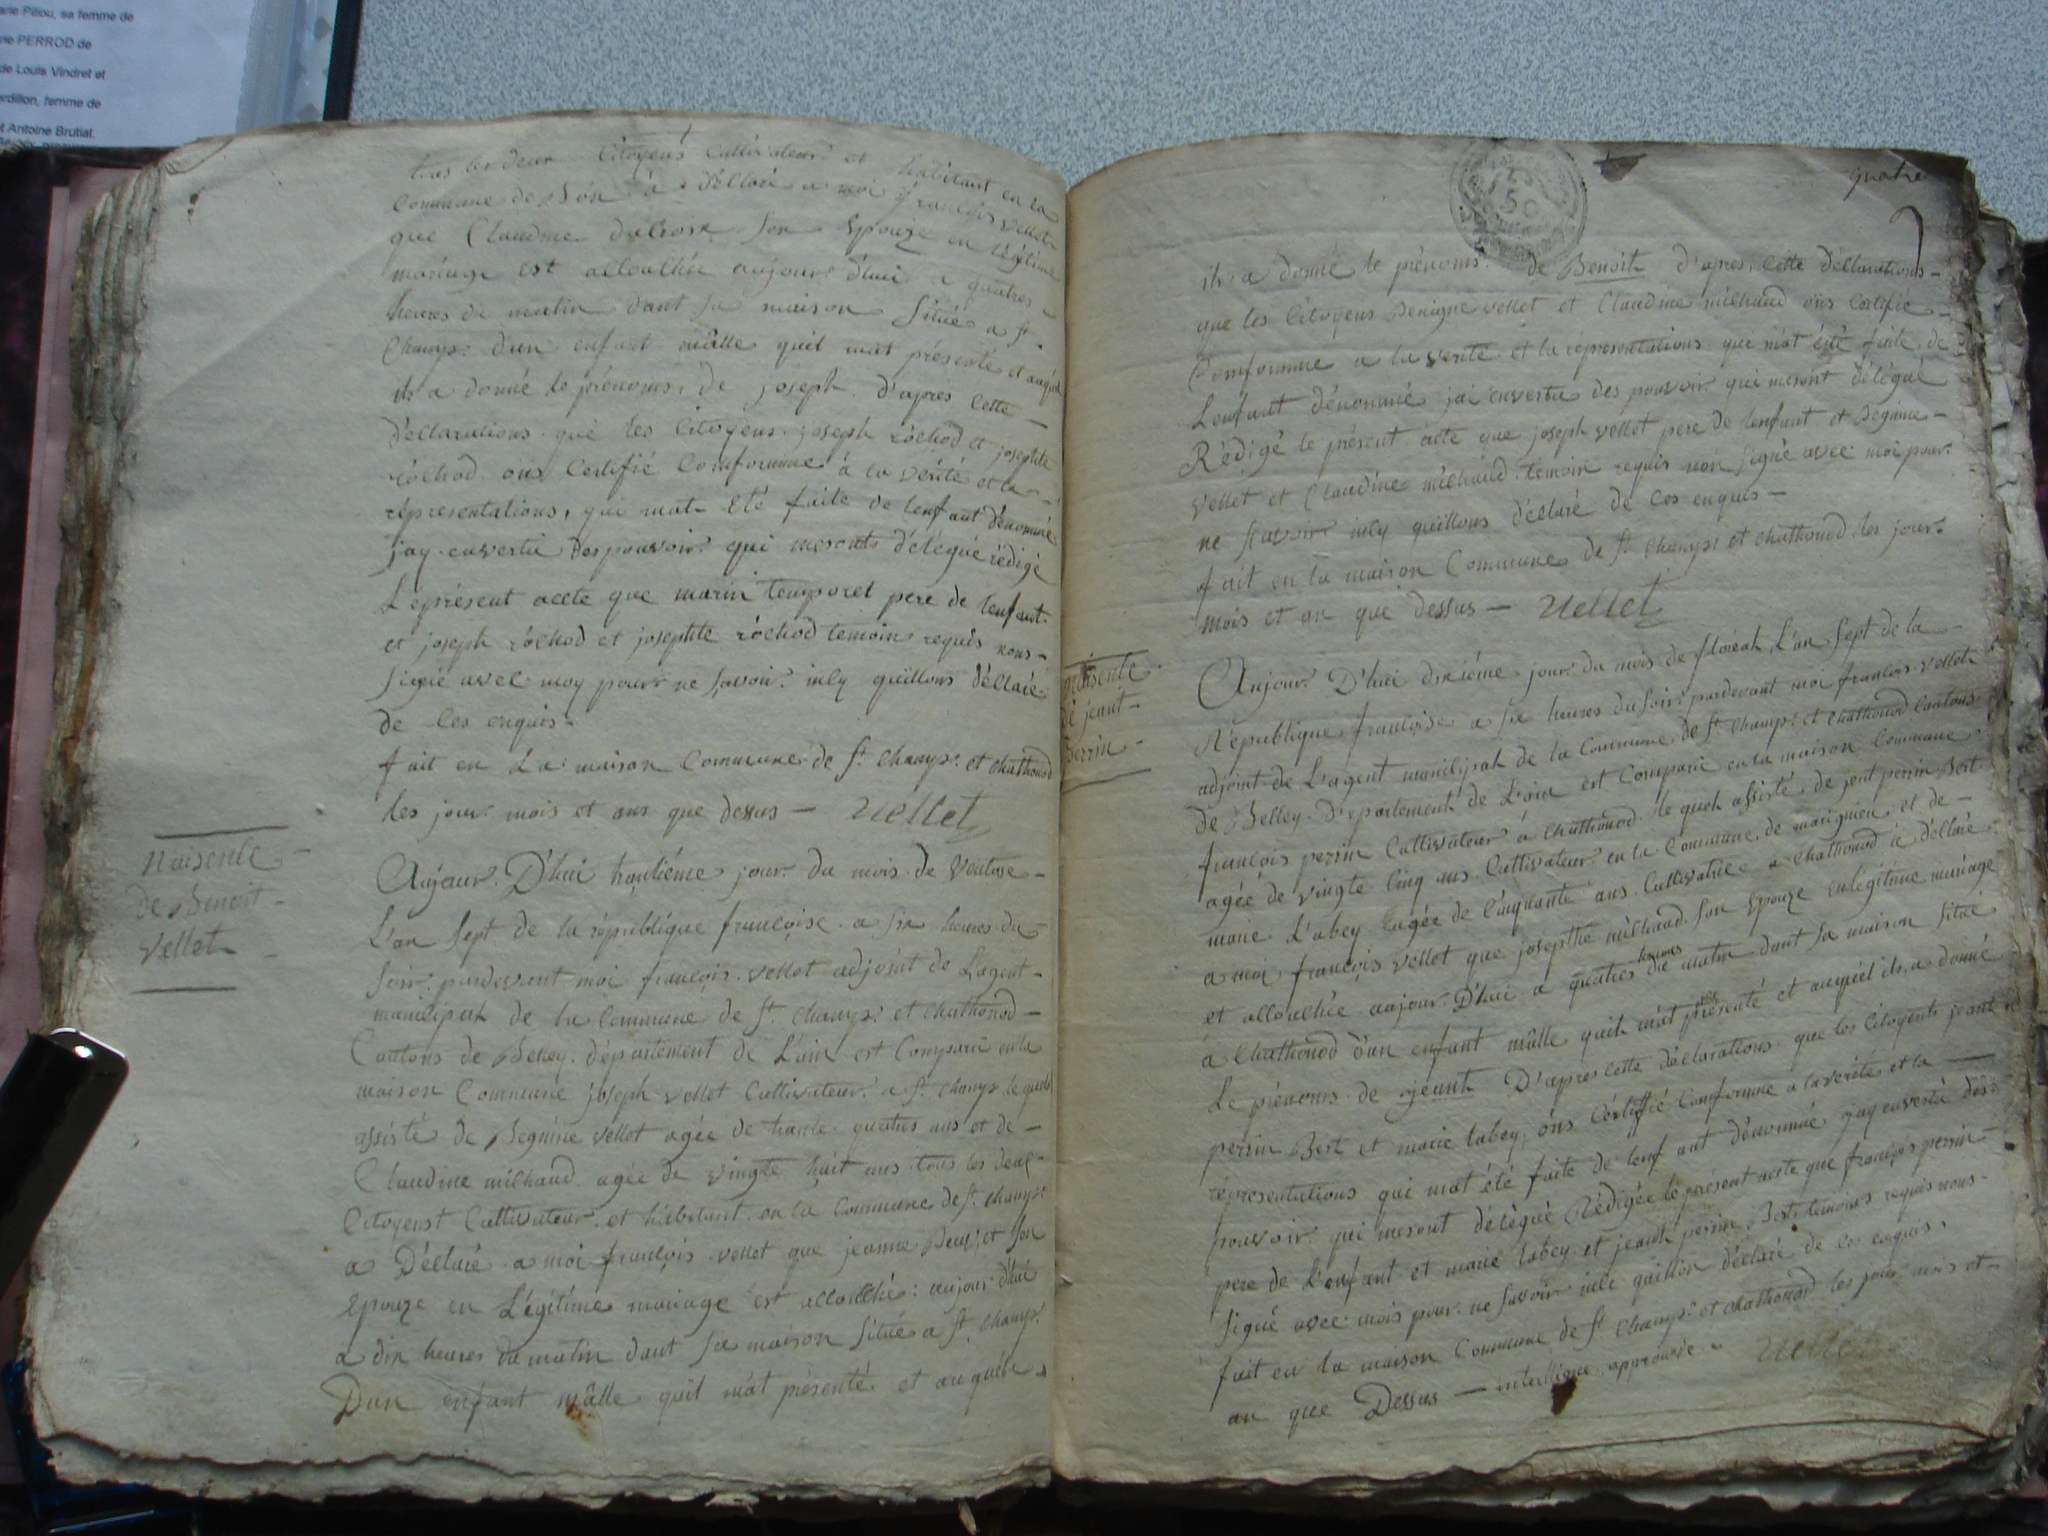 arie Pillou, sa femme de
rie PERROD de
de Louis Vindret et
ardillon, femme de
t Antoine Brutiat.
tous les deux Citoyens Cultivateur et habitant en la
Commune de Bon à Déllaré a moi françois vellet
que Claudine dulroix son Epouze en légitime
mariage est allouchée aujour d'hui a quatres
heures du matin dant sa maison Située a St
Champs. Dun enfant mâlle quil mat présenté et auquel
ils a donné le prénoms de joseph d'apres Cette
déllarations que les Citoyens joseph róchod et josephte
róchod ons Certifié Comformme à la vérité et la
représentations, qui mat été faite de lenfant dénommé
jay envertu des pouvoir qui mesonts délégué rédigé
Le présent acete que marin temporet pere de lenfant
et joseph róchod et josephte róchod temoin requis nons
Signé avec moy pour ne Savoir inly quillons déllaré
de Ces enquis
fait en La maison Commune de St Champs et Chathonod
les jour mois et ans que dessus — vellet
Naisente
de Benoit
Vellet
Aujour D'hui huitiéme jour du mois de Ventose
L'an Sept de la république françoise a Six heures du
Soir pardevent moi françois vellet adjoint de Lagent
municipal de la Commune de St Champs et Chathonod
Cantons de Belley département de L'ain est Comparu en la
maison Commune joseph vellet Cultivateur a St Champs le quel
assisté de Begnine vellet agée de trante quatres ans et de
Claudine milhaud agée de vingte huit ans tous les deux
Citoyenst Cultivateur et habitant en la Commune de St Champs
a Déllaré a moi françois vellet que jeanne et son
Epouze en Légitime mariage est allouché aujour d'hui
a dix heures du matin dant sa maison Située a St Champs
Dun enfant mâlle quil mat présenté et auquel
quatre
ils a donné le prénoms de Benoit d'apres Cette déllarations
que les Citoyens Benigne vellet et Claudine milhaud ons Certifié
Comformme a la verité et la répresentations que mat été faite de
Lenfant dénommé jai envertu des pouvoir qui mesont délégué
Rédigé le présent acte que joseph vellet pere de lenfant et Begnine
vellet et Claudine milhaud temoin requis non Signé avec moi pour
ne Savoir inly quillons déllaré de Ces enquis
fait en la maison Commune de St Champs et Chathonod les jour
mois et an que dessus — vellet
Naisente
de jeant
perrin
Aujour D'hui dixiéme jour du mois de floréal L'an Sept de la
République françoise a six heures du Soir pardevant moi francois vellet
adjoint de L'agent municipal de la Commune de St Champs et Chathonod Cantons
de Belley Département de L'ain est Comparu en la maison Commune
françois perrin Cultivateur à Chathonod le quel assisté de jeant perrin Bert
agée de vingte Cinq ans Cultivateur en la Commune de marignieu et de
marie L'abey agée de Cinquante ans Cultivatrice a Chathonod a déllaré
a moi françois vellet que josepthe milhaud Son Epouze en légitime mariage
et allouchée aujour D'hui a quatres heures du matin dant sa maison Situé
à Chathonod d'un enfant mâlle quil mat présenté et auquel ils a donné
Le prénoms de jeant D'apres Cette déclarations que les Citoyents jeant
perrin Bert et marie labey ons Certiffié Comformme a la verité et la
représentations qui mat été faite de lenfant dénommé jay envertu des
pouvoir qui mesont délégué Rédigée le présent acte que françois perrin
pere de L'enfant et marie labey et jeant perrin Bert temoins requis nons
Signé avec mois pour ne Savoir inli quillon déclaré de Ces enquis.
fait en la maison Commune de St Champs et Chathonod les jour mois et
an que Dessus — interligne approuvé vellet